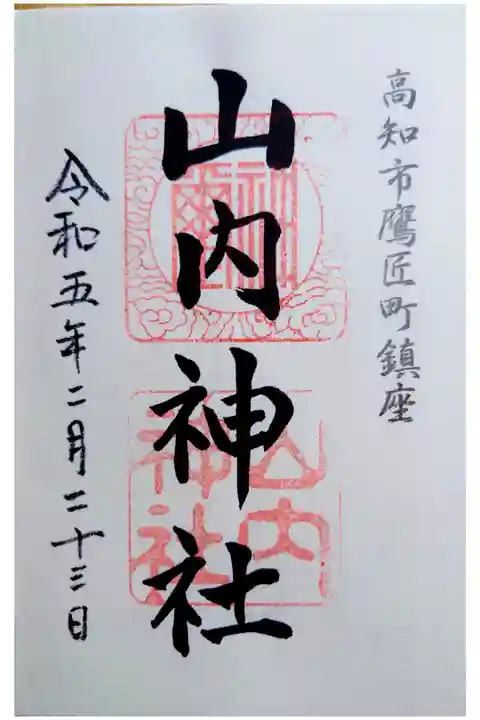 高知市鷹匠町鎮座
山内神社
令和五年二月二十三日
山内
神社